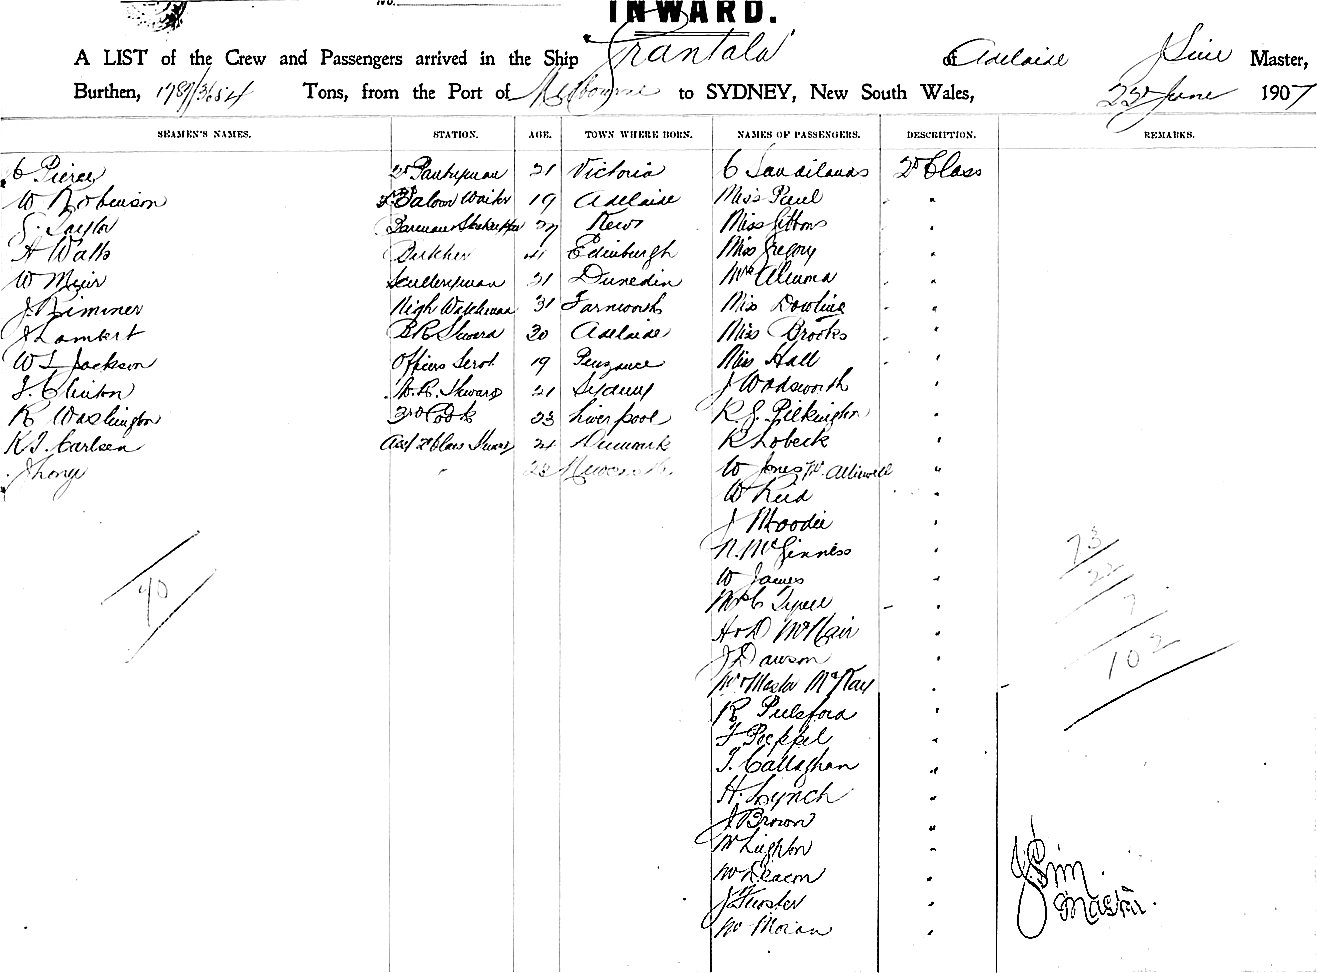 No.
INWARD.
A LIST of the Crew and Passengers arrived in the Ship "Grantala" of Adelaide J Sim Master,
Burthen, Tons, from the Port of Melbourne to SYDNEY, New South Wales, 23rd June 1907
SEAMEN'S NAMES. STATION. AGE. TOWN WHERE BORN. NAMES OF PASSENGERS. DESCRIPTION. REMARKS.
C Pierce 2nd Pantryman 21 Victoria C 2nd Class
W Robinson Saloon Waiter 19 Adelaide Miss Paul "
S. Taylor 27 Miss Gibbons "
A Watts Butcher 41 Edinburgh Miss Gregory "
W Muir Sculleryman 21 Dunedin Mrs "
J Rimmer Night Watchman 31 Farnworth Miss Dowling "
J Lambert B R Steward 30 Adelaide Miss Brooks "
W L Jackson Officers Servt 19 Penzance Miss Hall "
J. Clinton Steward 21 Sydney J Wadsworth "
R Washington 3rd Cook 23 Liverpool R. G. Pilkington "
K J. Carlsen Asst 2nd Class Steward 24 Denmark R Lobeck "
J Long " 23 W Jones "
W Reid "
J Moodie "
N. McGinness "
W James "
Mrs C Tyrell "
McNair "
J Dawson "
Mr & Master McKay "
R Pulsford "
F Poeppel "
J. Callaghan "
H. Lynch "
J Brown "
"
Deacon "
J Forster "
Moran "
40
73
22
7
102
J. Sim
Master.